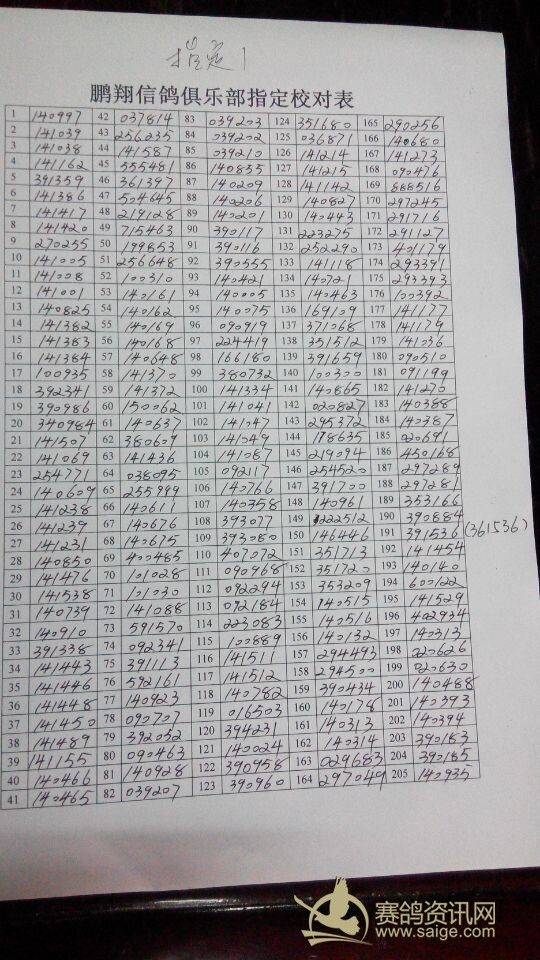 指定1
鹏翔信鸽俱乐部指定校对表
1 140997 42 037814 83 039203 124 351680 165 290256
2 141039 43 256235 84 039202 125 036871 166 140680
3 141038 44 141587 85 039210 126 141214 167 141273
4 141162 45 555481 86 140855 127 141215 168 090476
5 391359 46 361397 87 140209 128 141142 169 888516
6 141386 47 504645 88 140206 129 140827 170 297245
7 141417 48 219128 89 140201 130 140443 171 291716
8 141420 49 715463 90 390117 131 223275 172 291127
9 270255 50 199853 91 390116 132 252290 173 401179
10 141005 51 256648 92 390555 133 141118 174 293391
11 141008 52 100310 93 140421 134 140721 175 293393
12 141001 53 140161 94 140005 135 140463 176 100392
13 140825 54 140162 95 140075 136 169109 177 141177
14 141382 55 140169 96 090919 137 371068 178 141179
15 141383 56 140168 97 224419 138 351512 179 141036
16 141384 57 140648 98 166180 139 391659 180 090510
17 100935 58 141370 99 380732 140 100300 181 091199
18 392341 59 141372 100 141334 141 140865 182 141270
19 390986 60 150062 101 141041 142 020827 183 140388
20 340984 61 140637 102 141047 143 295372 184 140387
21 141507 62 380609 103 141049 144 178635 185 020691
22 141069 63 141436 104 141087 145 219094 186 450168
23 254771 64 038095 105 092117 146 254520 187 297289
24 140609 65 255999 106 140766 147 391700 188 297281
25 141238 66 140611 107 140358 148 140961 189 353166
26 141239 67 140676 108 393077 149 222512 190 390884
27 141231 68 140675 109 393080 150 146446 191 391536 (361536)
28 140850 69 400485 110 407072 151 351713 192 141454
29 141476 70 101028 111 090968 152 351720 193 140140
30 141538 71 101030 112 092294 153 353209 194 600122
31 140739 72 141088 113 092184 154 140515 195 141529
32 140910 73 591570 114 223083 155 140516 196 402934
33 391338 74 092341 115 100889 156 140132 197 140313
34 141443 75 391113 116 141511 157 294493 198 020626
35 141446 76 592161 117 141512 158 294500 199 020630
36 141448 77 140923 118 140782 159 390434 200 140488
37 141450 78 090707 119 016503 160 140178 201 140393
38 141489 79 392052 120 394231 161 140313 202 140394
39 141155 80 090463 121 140024 162 140314 203 390183
40 140466 81 140928 122 390958 163 029683 204 390185
41 140465 82 039207 123 390960 164 297049 205 140935
赛鸽资讯网
www.saige.com